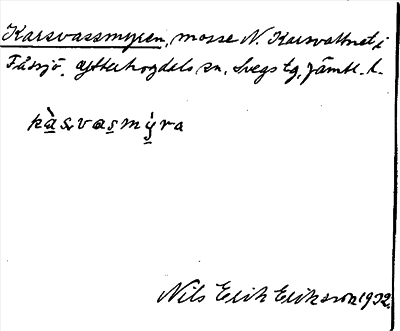 Karsvassmyren, mosse N. Karsvattnet i
Fåssjö. Ytterhogdals sn. Svegs tg, Jämtl. l.
kàsvasmýra
Nils Erik Eriksson 1932.